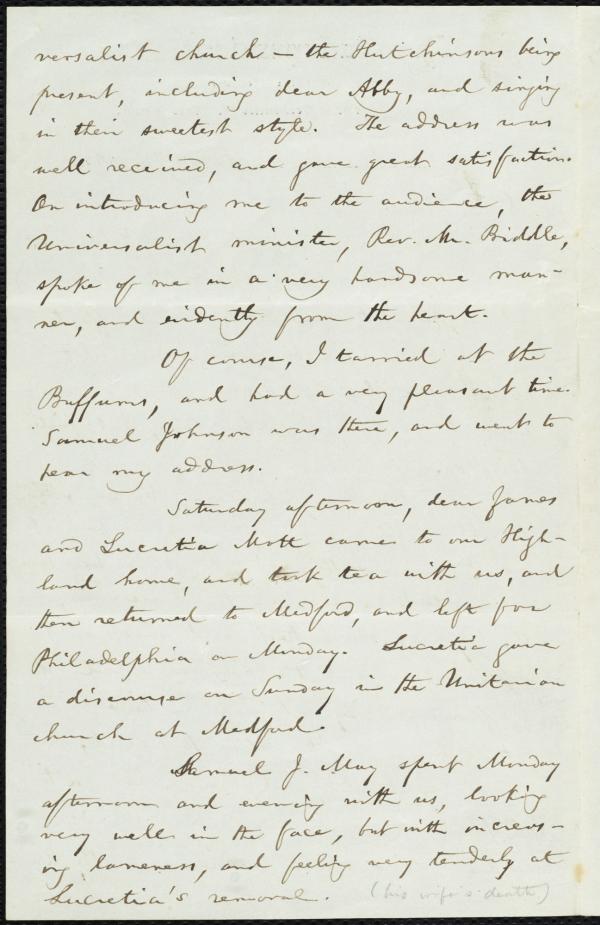 versalist church — the Hutchinsons being
present, including dear Abby, and singing
in their sweetest style. The address was
well received, and gave great satisfaction.
On introducing me to the audience, the
Universalist minister, Rev. Mr. Biddle,
spoke of me in a very handsome man-
ner, and evidently from the heart.
Of course, I tarried at the
Buffums, and had a very pleasant time.
Samuel Johnson was there, and went to
hear my address.
Saturday afternoon, dear James
and Lucretia Mott came to our High-
land home, and took tea with us, and
then returned to Medford, and left for
Philadelphia on Monday. Lucretia gave
a discourse on Sunday in the Unitarian
church at Medford.
Samuel J. May spent Monday
afternoon and evening with us, looking
very well in the face, but with increas-
ing lameness, and feeling very tenderly at
Lucretia's removal. (his wife's death)